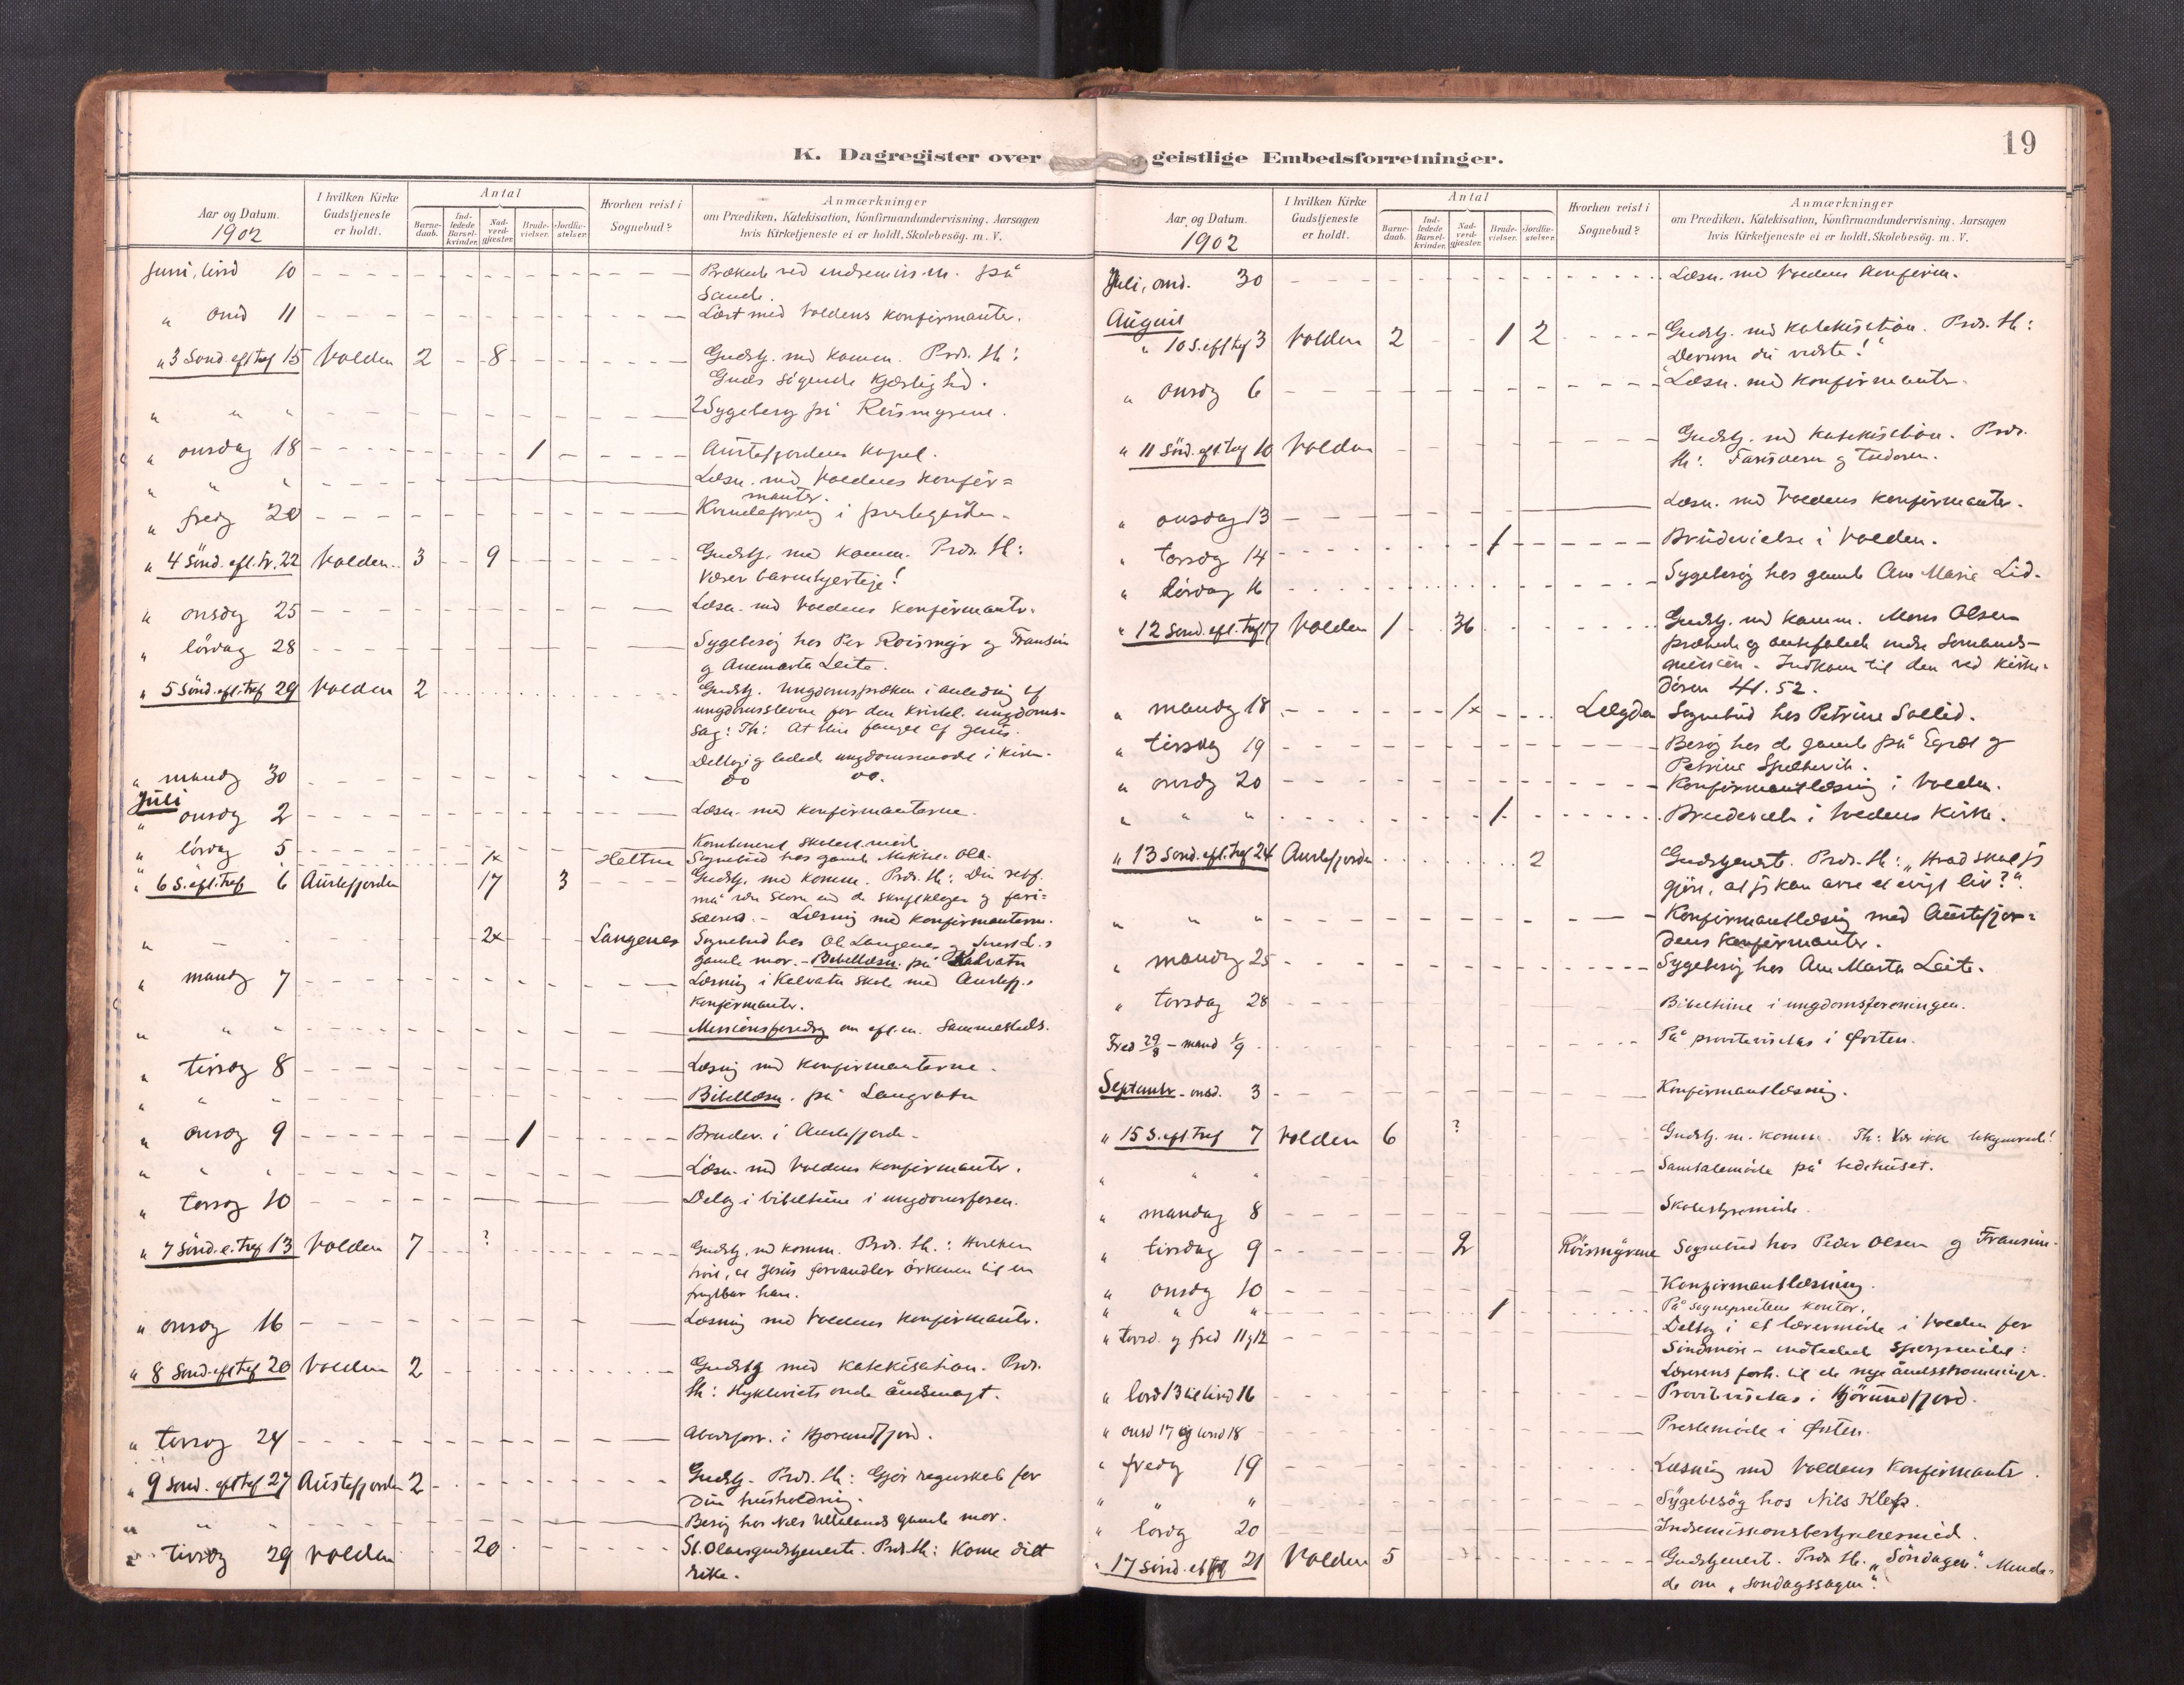 19
K. Dagregister over geistlige Embedsforretninger.
Aar og Datum. 1902
I hvilken Kirke Gudstjeneste er holdt.
Antal
Barne-daab.
Ind-ledede Barsel-kvinder.
Nad-verd-gjæster.
Brude-vielser.
Jordfæ-stelser.
Hvorhen reist i Sognebud?
Anmærkninger
om Prædiken, Katekisation, Konfirmandundervisning, Aarsagen
hvis Kirketjeneste ei er holdt, Skolebesög. m. V.
Juni, tirsd 10 Prækede ved indremis. m. på
Sande.
" onsd 11 Læst med Voldens konfirmanter.
" 3 Sönd eft tref 15 Volden 2 8 Gudstj. med komm. Præd. th:
Guds sögende kjærlighed.
" " " 2 Sygebesög på Röismyrene.
" onsdag 18 1 Austefjordens kapel.
" " " Læsn. med Voldens konfir=
manter.
" fredg 20 Kvindeforening i prestegården.
" 4 Sönd. eft. tr. 22 Volden 3 9 Gudstj. med komm. Præd. th:
Værer barmhjertige!
" onsdg 25 Læsn. med Voldens konfirmanter.
" lördag 28 Sygebesög hos Per Röismyr og Fransin
og Anemarta Leite.
" 5 Sönd. eft. tref 29 Volden 2 Gudstj. Ungdomspræken i anledning af
ungdomsstevne for den kristel. ungdoms-
sag: Th: At blive fanget af Jesus.
Deltog i og ledede ungdomsmøde i kirken.
" mandg 30 do do.
Juli
" onsdg 2 Læsn. med konfirmanterne.
" lördag 5 Kombineret skolest. möde
1x Heltne Sognebud hos gamle Mekkel-Ola.
" 6 S. eft. tref 6 Austefjorden 17 3 Gudstj. med komm. Præd. th: Din retf.
må være större end de skriftkloges og fari=
sæeres. - Læsning med konfirmanterne.
" 2x Langenes Sognebud hos Ole Langenes og
gamle mor. - Bibellæsn. på Kalvatn
" mandg 7 Læsning i Kalvatn skole med Austefj.s
konfirmanter.
" " " Missionsforedrag om eft.m. sammesteds.
" tirsdg 8 Læsnig med konfirmanterne.
" " " Bibellæsn. på Langvatn
" onsdg 9 1 Brudev. i Austefjorden.
" " " Læsn. med Voldens konfirmanter.
" torsdg 10 Deltog i bibeltime i ungdomsforen.
" 7 Sönd. e. tref 13 Volden 7 ? Gudstj. med komm. Præd. th.:
at Jesus forvandler örkenen til en
frugtbar have.
" onsdg 16 Læsning med Voldens konfirmanter.
" 8 Sönd. eft tref 20 Volden 2 Gudstj med katekisation. Præd.
th: Hykleriets onde åndsmagt.
" torsdg 24 i Hjörundfjord.
" 9 Sönd. eft tref 27 Austefjorden 2 Gudstj. Præd. th: Gjör regnskab for
din husholdning.
" " " Besög hos Nils gamle mor.
" tirsdg 29 Volden 20 St. Olavsgudstjeneste. Præd. th: Kome ditt
rike.
Aar og Datum. 1902
I hvilken Kirke Gudstjeneste er holdt.
Antal
Barne-daab.
Ind-ledede Barsel-kvinder.
Nad-verd-gjæster.
Brude-vielser.
Jordfæ-stelser.
Hvorhen reist i Sognebud?
Anmærkninger
om Prædiken, Katekisation, Konfirmandundervisning, Aarsagen
hvis Kirketjeneste ei er holdt, Skolebesög. m. V.
Juli, onsd. 30 Læsn. med Voldens konfirm.
August
" 10 S. eft tref 3 Volden 2 1 2 Gudstj. med katekisation. Præd. th:
"Dersom du vidste!"
" onsdg 6 Læsn. med konfirmanter.
" 11 Sönd. eft. tref 10 Volden Gudstj. med katekisation. Præd.
th: Farisæeren og tolderen.
" onsdag 13 Læsn. med Voldens konfirmanter.
" torsdg 14 1 Brudevielse i Volden.
" lördag 16 Sygebesög hos gamle Ane Marie Lid.
" 12 Sönd. eft. tref 17 Volden 1 36 Gudstj. med komm. Mons Olsen
prækede og anbefalede indre sömands-
missión. Indkom til den ved kirke-
dören 41.52.
" mandg 18 1x Sognebud hos Petrine Sollid.
" tirsdg 19 Besög hos de gamle på Egset og
Petrine
" onsdg 20 Konfirmantlæsning i Volden.
" " " 1 Brudevielse i Voldens kirke.
" 13 Sönd. eft. tref 24 Austefjorden 2 Gudstjeneste. Præd. th: "Hvad skal jeg
gjöre, at jeg kan arve et evigt liv?"
" " " Konfirmantlæsnig med Austefjor=
dens konfirmanter.
" mandg 25 Sygebesög hos Ane Marta Leite.
" torsdag 28 Bibeltime i ungdomsforeningen.
Fred 29/8 - mand 1/9 På provstevisitas i Örsten.
September - onsd. 3 Konfirmantlæsning.
" 15 S. eft. tref 7 Volden 6 ? Gudstj. m. komm. Th: Vær ikke bekymred!
" " " Samtalemöde på bedehuset.
" mandag 8 Skolestyremöde.
" tirsdag 9 2 Röismyrene Sognebud hos Peder Olsen og Fransine.
" onsdg 10 Konfirmantlæsning.
" " " 1 På sogneprestens kontor.
" torsd. og fred 11 g 12 Deltog i et lærermöde i Volden for
Söndmör - indledede spörgsmålet:
Lærerens forh. til de nye åndsströmninger.
" lord 13 til tirsd 16 Provstevisitas i Hjörundfjord.
" onsd 17 og torsd 18 Prestemöde i Örsten.
" fredg 19 Læsning med Voldens konfirmanter.
" " " Sygebesög hos Nils Klep.
" lördg 20 Indremissionsbestyrelsesmöd.
" 17 Sönd. eft tref 21 Volden 5 Gudstjenest. Præd. th. "Söndagen". Minde-
de om "söndagssagen".